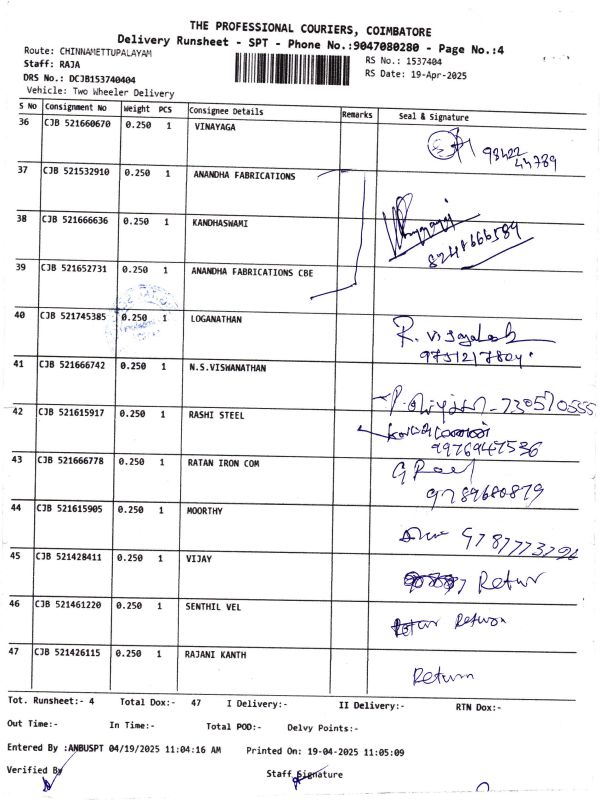 THE PROFESSIONAL COURIERS, COIMBATORE
Delivery Runsheet - SPT - Phone No.:9047080280 - Page No.:4
Route: CHINNAMETTUPALAYAM
RS No.: 1537404
Staff: RAJA
RS Date: 19-Apr-2025
DRS No.: DCJB153740404
Vehicle: Two Wheeler Delivery
S No Consignment No Weight PCS Consignee Details Remarks Seal & Signature
36 CJB 521660670 0.250 1 VINAYAGA
98422
44789
37 CJB 521532910 0.250 1 ANANDHA FABRICATIONS
38 CJB 521666636 0.250 1 KANDHASWAMI
8248666589
39 CJB 521652731 0.250 1 ANANDHA FABRICATIONS CBE
40 CJB 521745385 0.250 1 LOGANATHAN
9751217804
41 CJB 521666742 0.250 1 N.S.VISWANATHAN
730570555
42 CJB 521615917 0.250 1 RASHI STEEL
9976947536
43 CJB 521666778 0.250 1 RATAN IRON COM
9789680879
44 CJB 521615905 0.250 1 MOORTHY
45 CJB 521428411 0.250 1 VIJAY Retur
46 CJB 521461220 0.250 1 SENTHIL VEL Return
47 CJB 521426115 0.250 1 RAJANI KANTH Return
Tot. Runsheet:- 4 Total Dox:- 47 I Delivery:- II Delivery:- RTN Dox:-
Out Time:- In Time:- Total POD:- Delvy Points:-
Entered By :ANBUSPT 04/19/2025 11:04:16 AM Printed On: 19-04-2025 11:05:09
Verified By Staff Signature